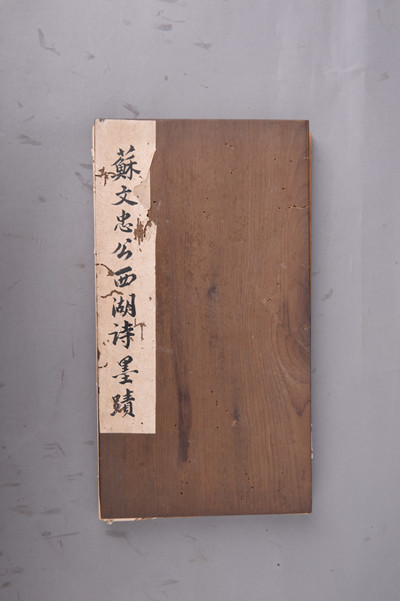 蘇文忠公西湖诗墨蹟